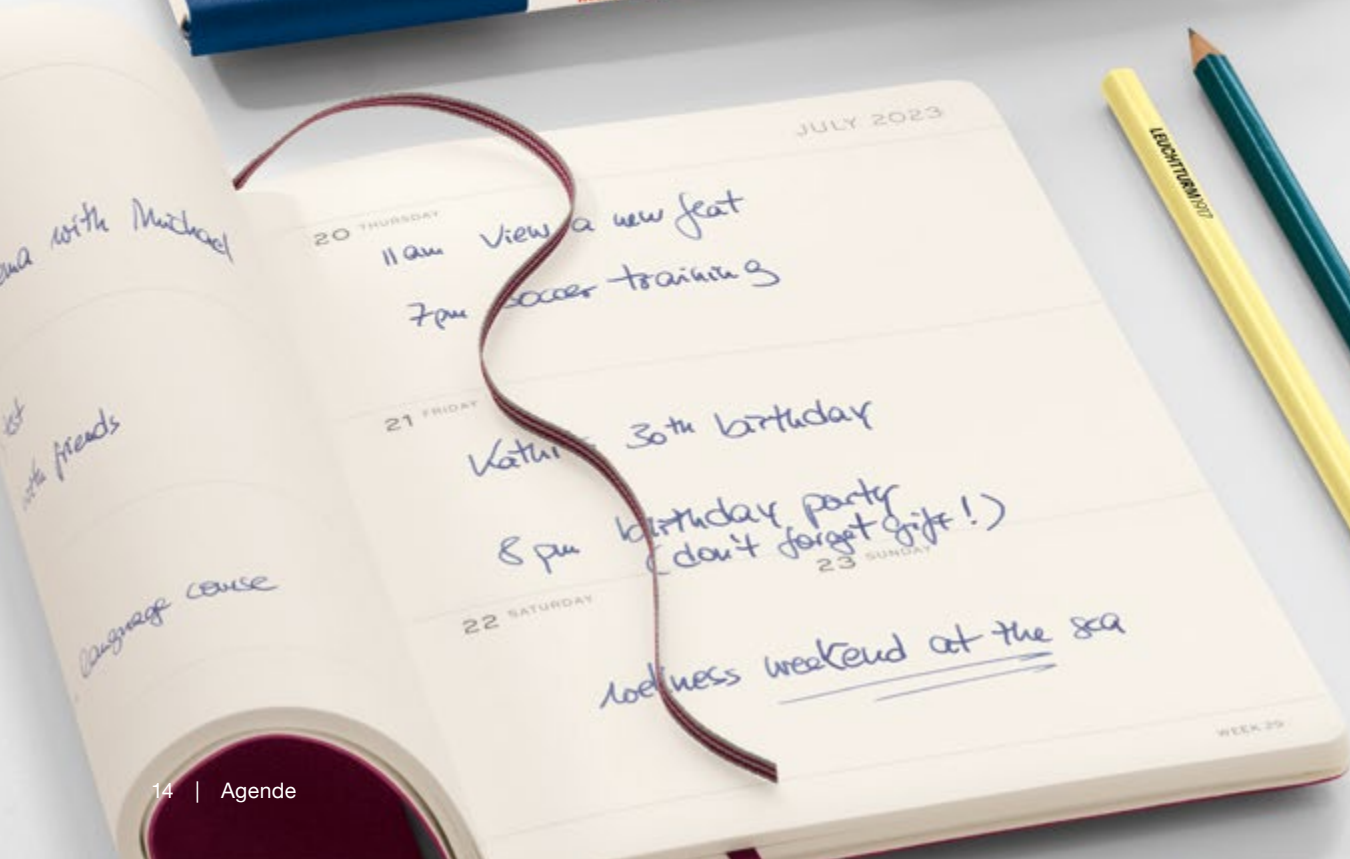 JULY 2023
with Michael
with friends
language course
20 THURSDAY
11am View a new flat
7pm soccer training
21 FRIDAY
30th birthday
8pm birthday party
(don't forget gift!)
22 SATURDAY
23 SUNDAY
weekend at the sea
WEEK 29
LEUCHTTURM1917
14 | Agende